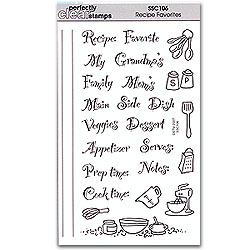 perfectly
clear stamps
SSC106
Recipe Favorites
Recipe: Favorite
My Grandma's
Family Mom's
S P
Main Side Dish
Veggies Dessert
Appetizer Serves:
Prep time: Notes:
Cook time: